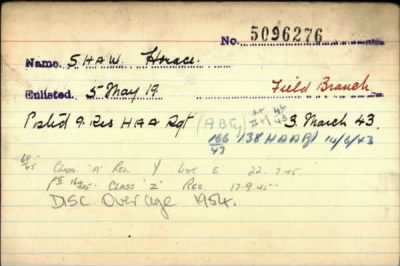 No. 5096276
Name. SHAW. Horace.
Enlisted. 5 May 19 Field Branch
Posted 9. Res HAA Rgt (ABC) 3 March 43.
166/43 138 HAAR/ 10/6/43
CLASS 'A' REL Y LIST E 22.7.45
CLASS 'Z' RES 17.9.45
DISC Over age 1954.